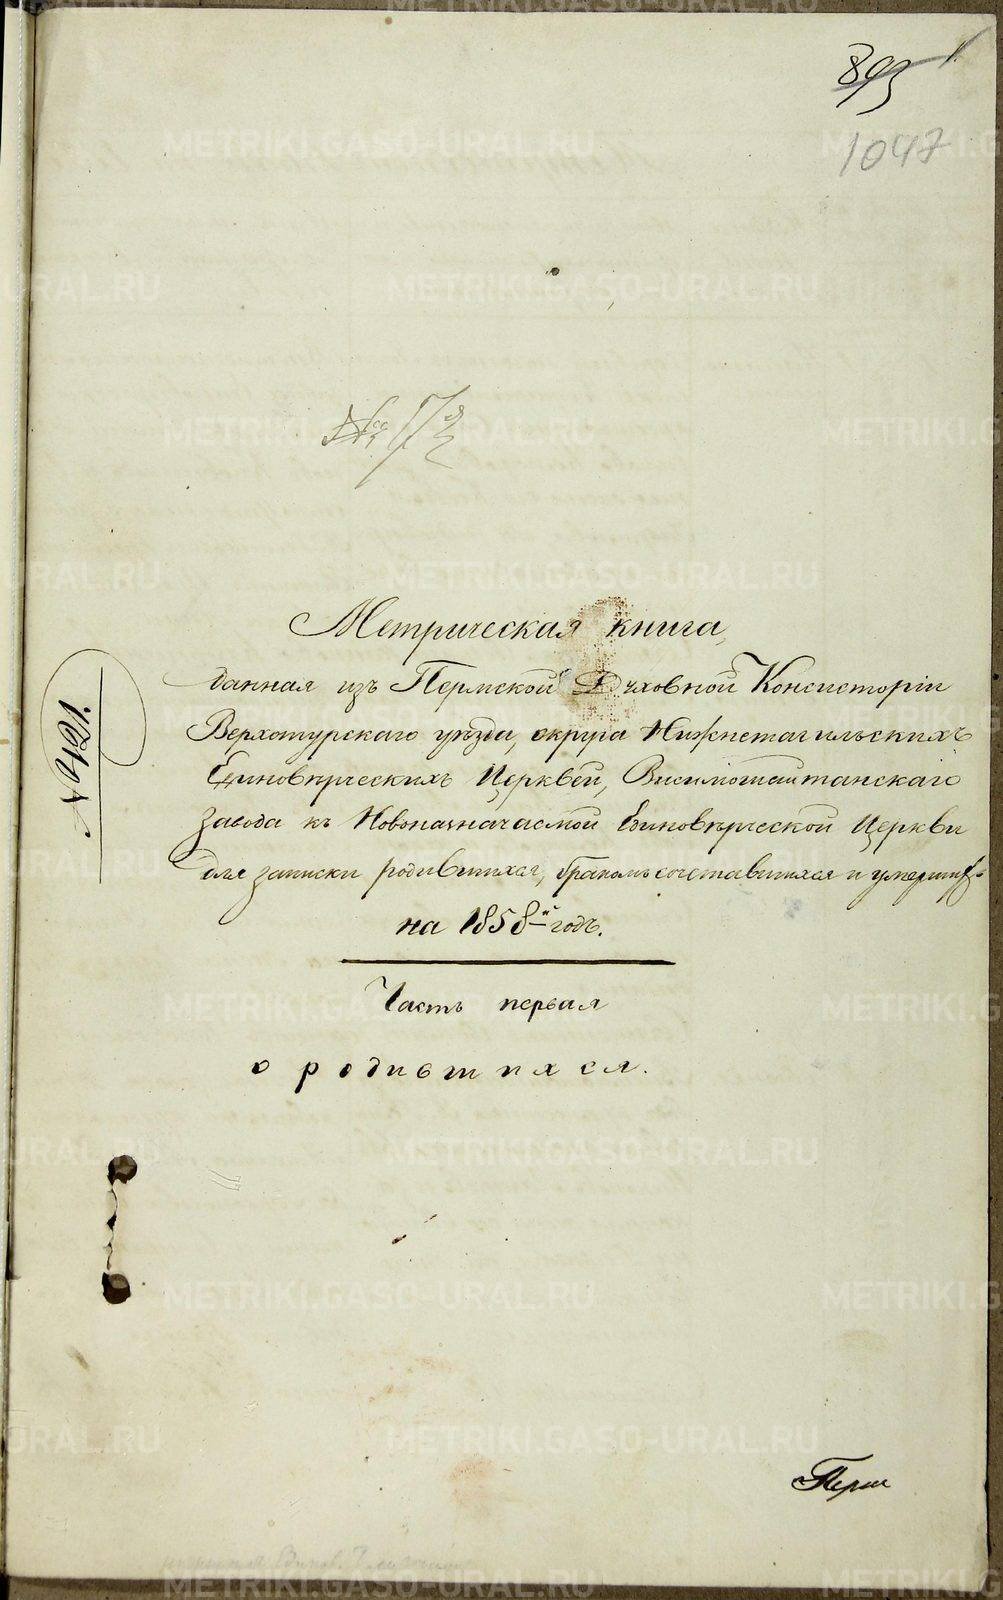 893
1047
№ 421.
Метрическая книга,
данная изъ Пермской Духовной Консисторіи
Верхотурскаго уѣзда, округа Нижнетагильскихъ
Единовѣрческихъ Церквей, Висимошайтанскаго
завода къ Новоназначаемой Единовѣрческой Церкви
для записки родившихся, бракомъ сочетавшихся и умершихъ
на 1858й годъ.
Часть первая
о родившихся.
METRIKI.GASO-URAL.RU